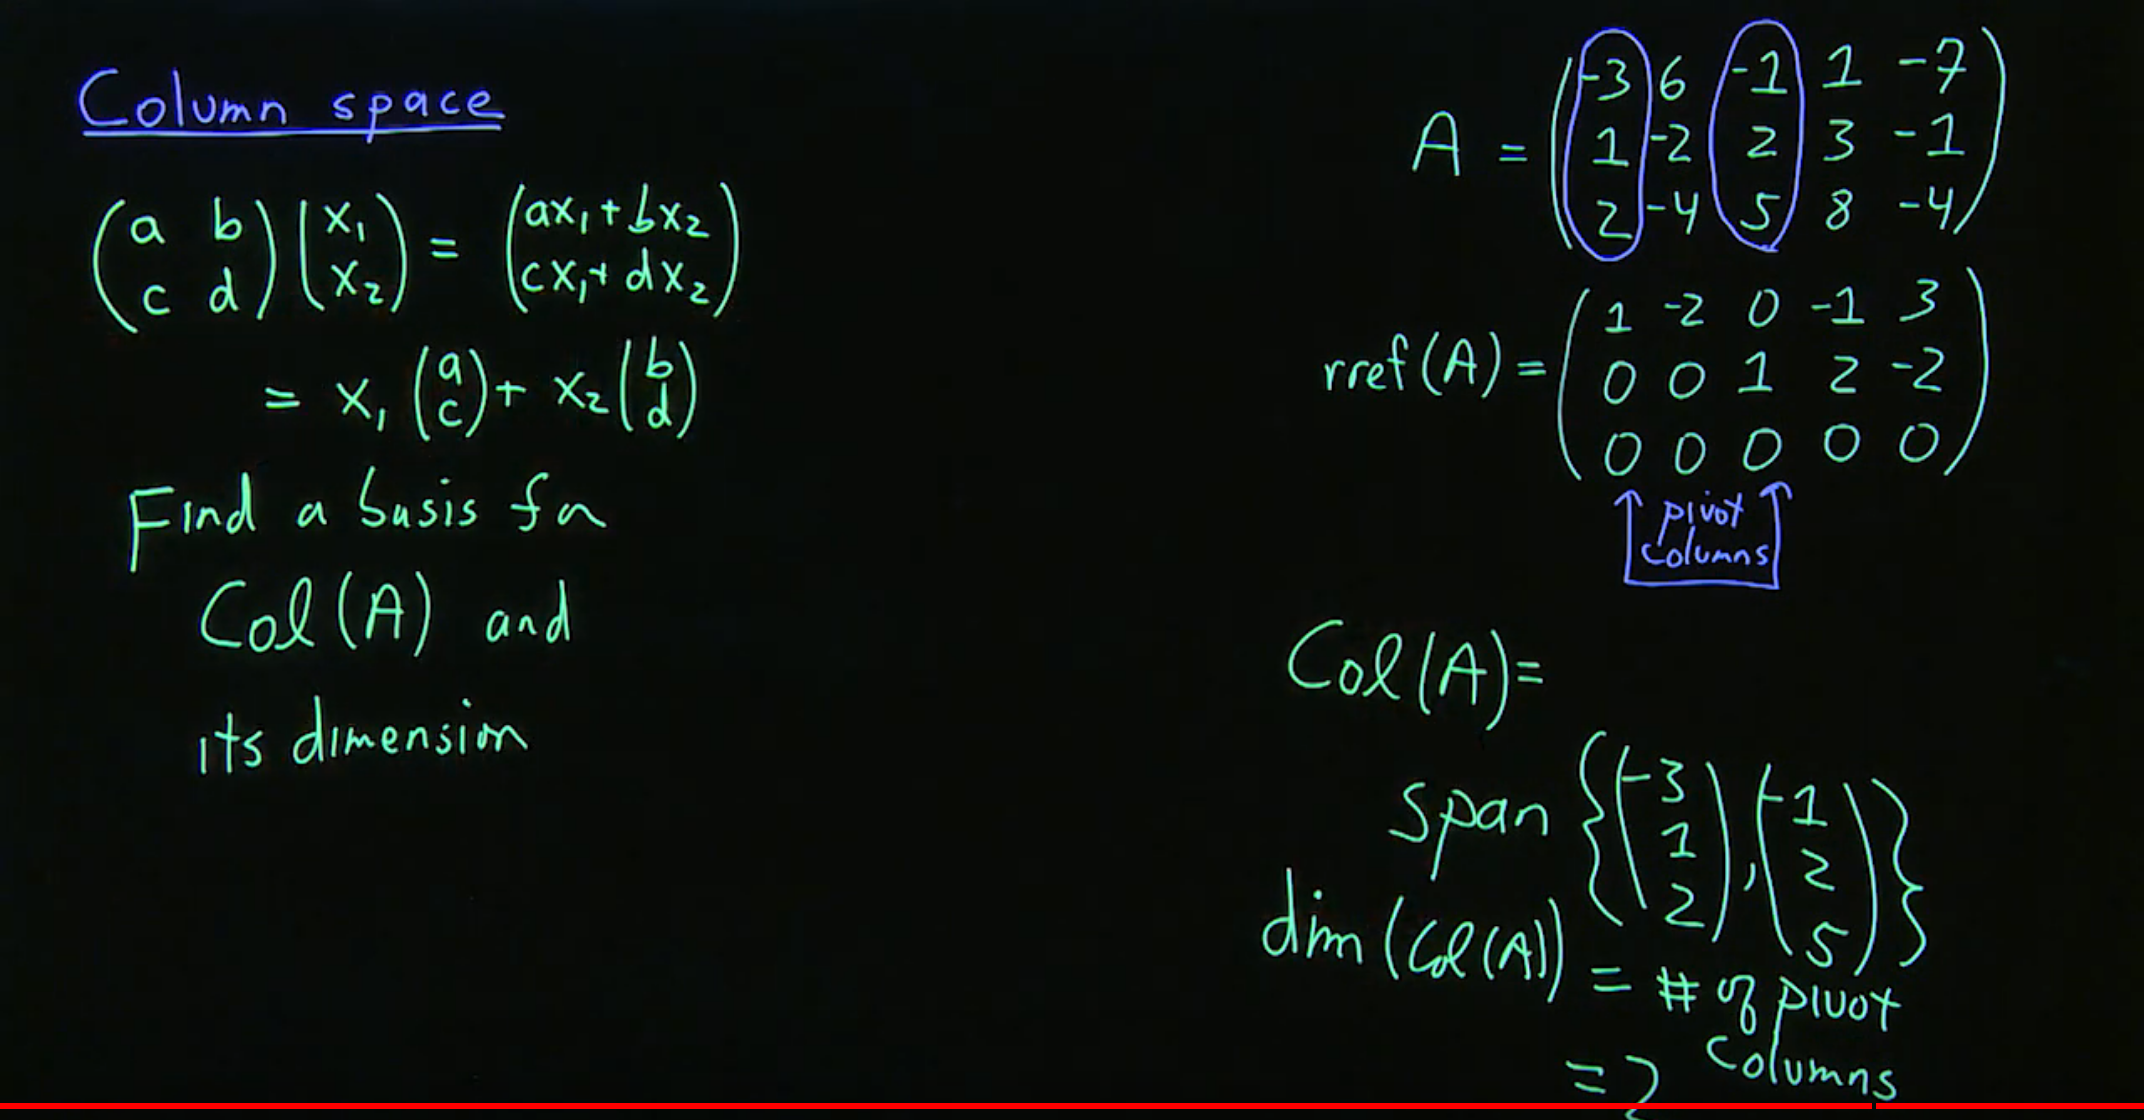 Column space
(a b) (x₁) = (ax₁ + bx₂)
(c d) (x₂)   (cx₁ + dx₂)
= x₁ (a) + x₂ (b)
(c) (d)
Find a basis for
Col(A) and
its dimension
A = (-3 6 -1 1 -7)
(1 -2 2 3 -1)
(2 -4 5 8 -4)
rref(A) = (1 -2 0 -1 3)
(0 0 1 2 -2)
(0 0 0 0 0)
pivot
columns
Col(A) =
span {(-3), (-1)}
(1) (2)
(2) (5)
dim(Col(A)) = # of pivot
columns
= 2